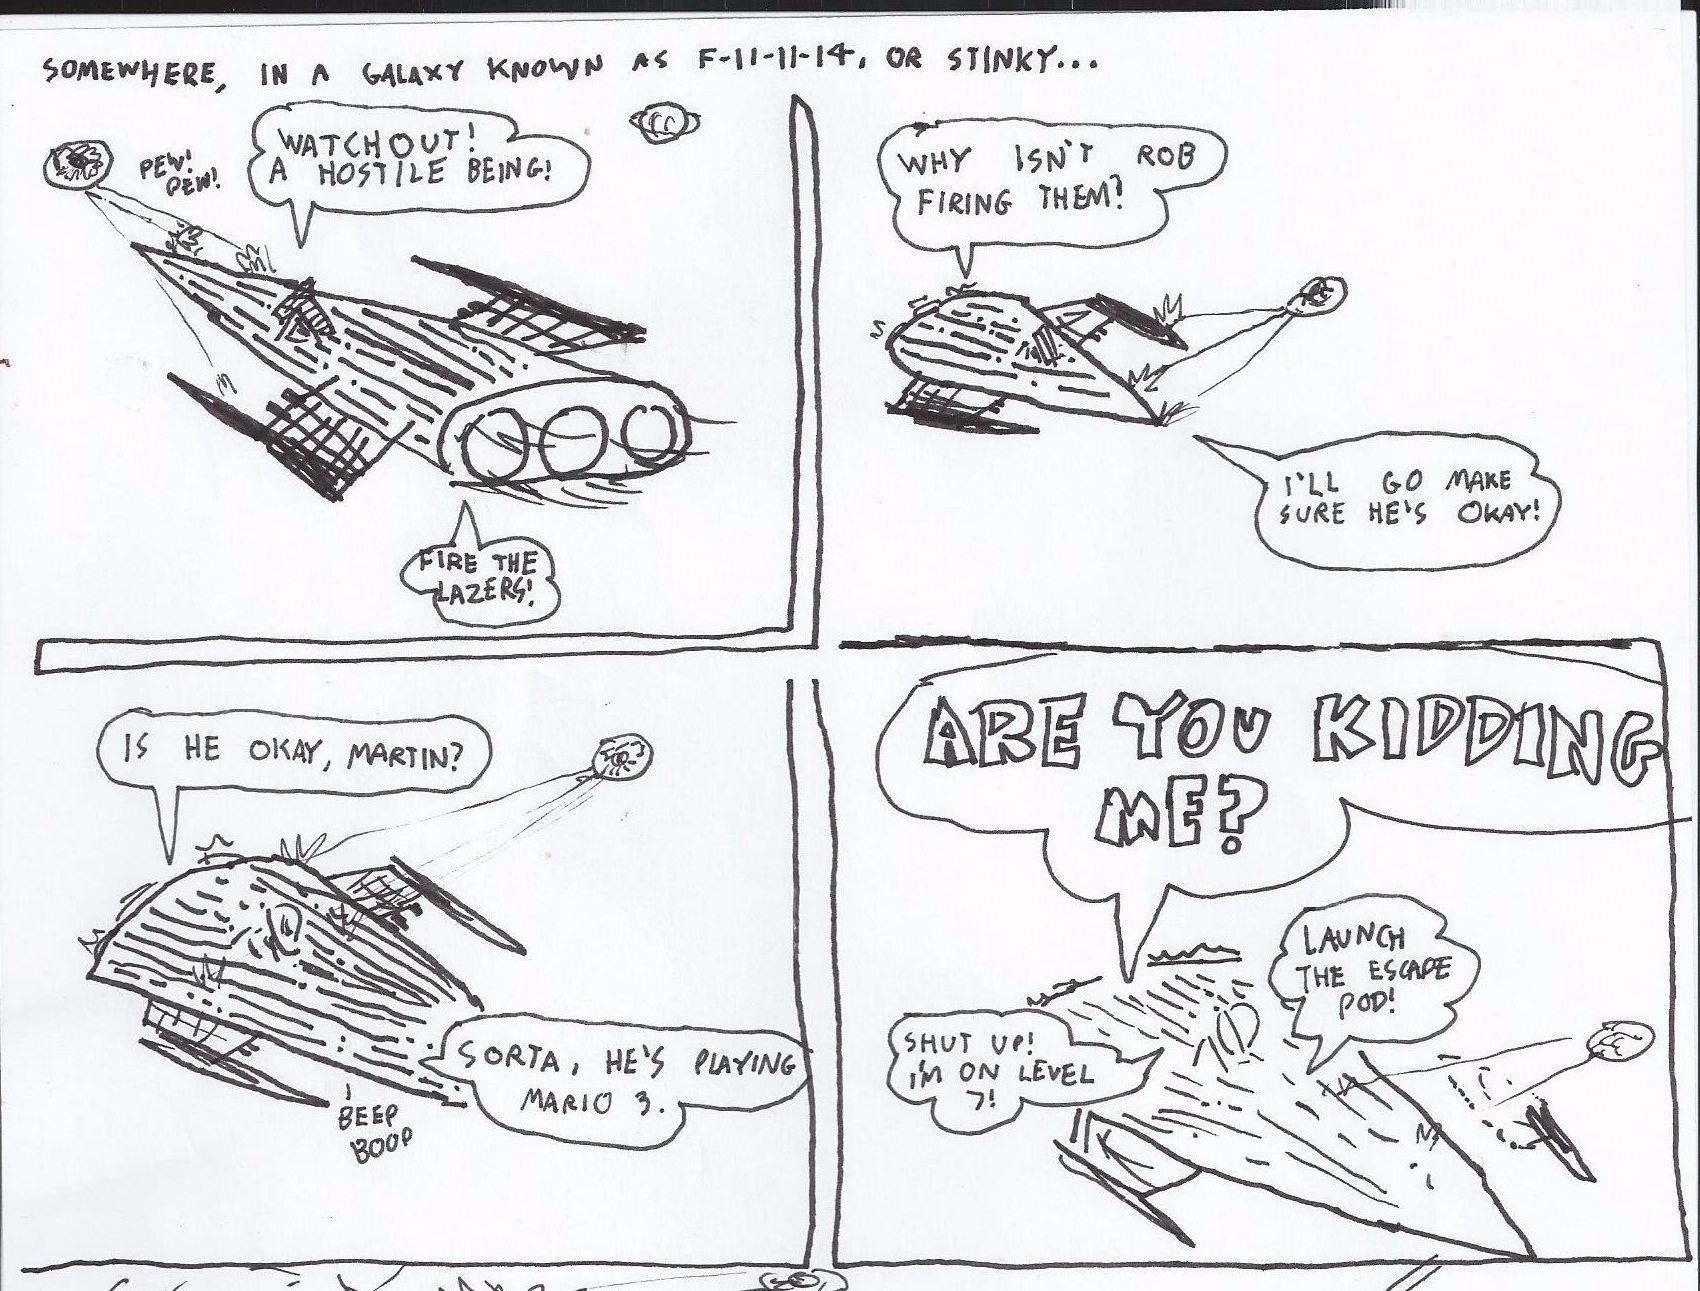 SOMEWHERE, IN A GALAXY KNOWN AS F-11-11-14, OR STINKY...
WATCH OUT!
A HOSTILE BEING!
PEW!
PEW!
FIRE THE
LAZERS!
WHY ISN'T ROB
FIRING THEM?
I'LL GO MAKE
SURE HE'S OKAY!
IS HE OKAY, MARTIN?
SORTA, HE'S PLAYING
MARIO 3.
BEEP
BOOP
ARE YOU KIDDING
ME?
LAUNCH
THE ESCAPE
POD!
SHUT UP!
I'M ON LEVEL
7!